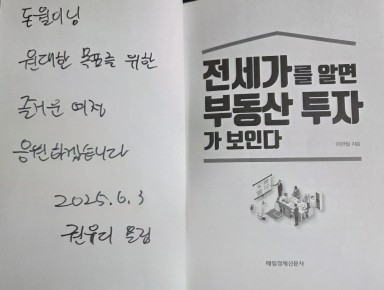 돈월디님
원대한 목표를 위한
즐거운 여정
응원하겠습니다
2025.6.3
권유디 드림
전세가를 알면
부동산 투자
가 보인다
지음
매일경제신문사